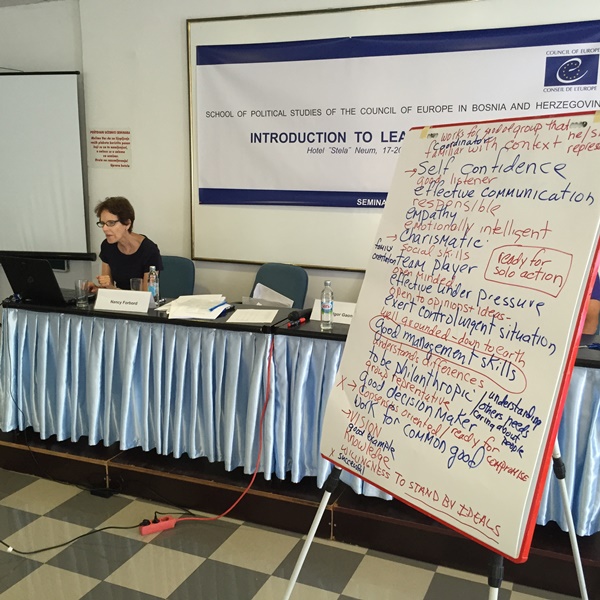 COUNCIL OF EUROPE
CONSEIL DE L'EUROPE
SCHOOL OF POLITICAL STUDIES OF THE COUNCIL OF EUROPE IN BOSNIA AND HERZEGOVIN
INTRODUCTION TO LEA
Hotel "Stela" Neum, 17-20
SEMINA
Nancy Forbord
works for good of group that he/s
(coordinator)
familiar with context repres
→ Self confidence
good listener
effective communication
responsible
empathy
emotionally intelligent
→ Charismatic
social skills
team player
ready for solo action
open minded
effective under pressure
open to opinions + ideas-
exert control urgent situation
well grounded - down to earth
Good management skills
understands differences
to be philanthropic: understanding
others needs
caring about
people
group representative
good decision maker
X → consensus oriented / ready for compromise
Work for common good
→ VISION
good example
Knowledge
X WILLINGNESS TO STAND BY IDEALS
successful